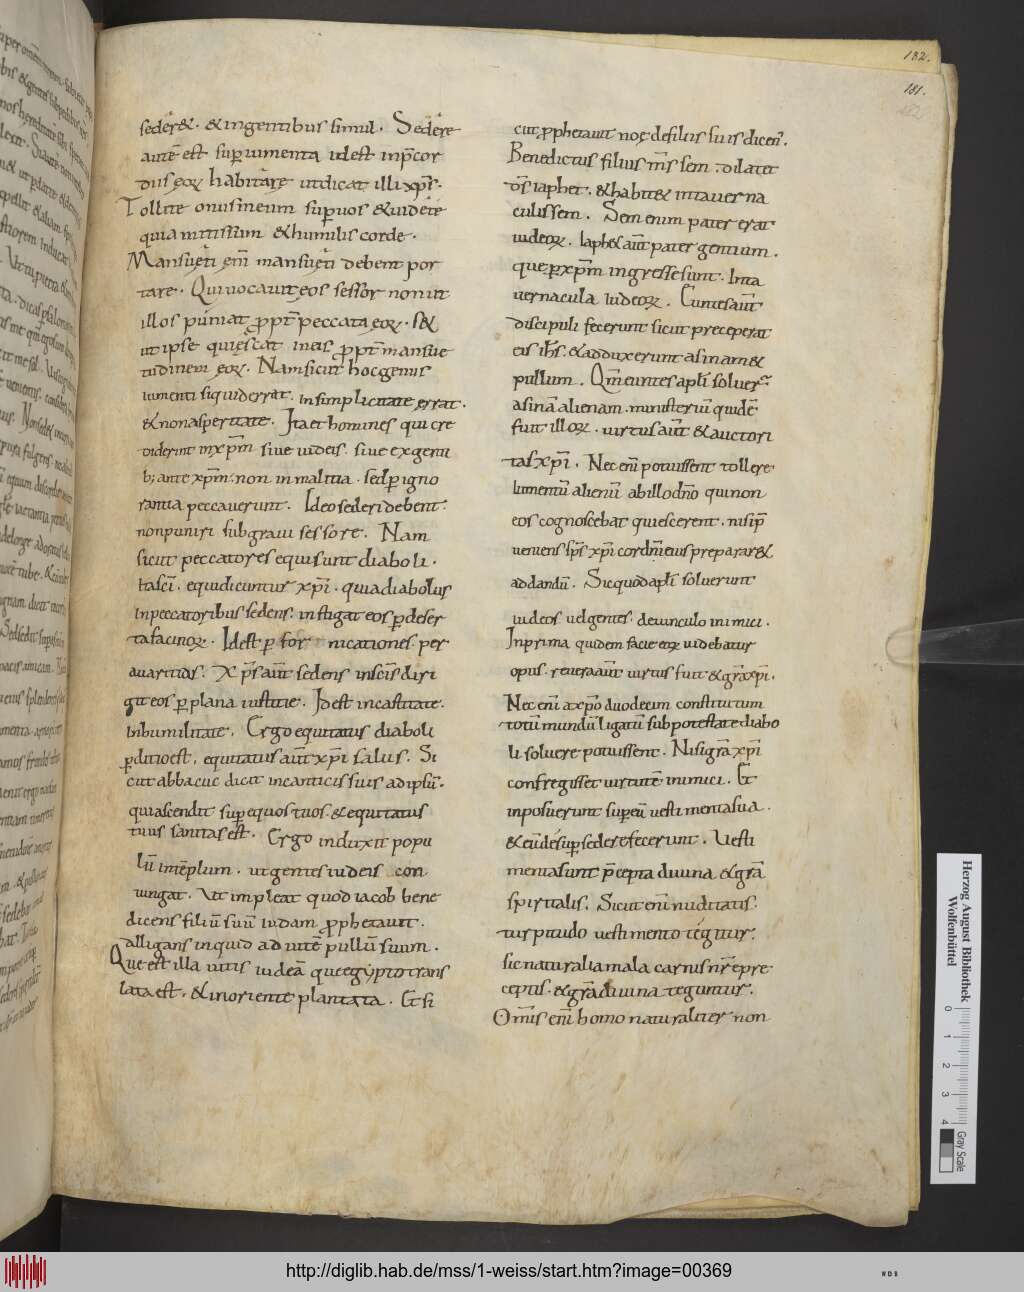 182.
181.
seder&. & ingentibus simul. Sedere
autē est super iumenta idest inp̄cor
dus eoꝝ habitare utdicat illi xp̄s.
Tollite onus meum sup uos & uidete
quia mitissum & humilis corde.
Mansueti em̄ mansueti debent por
tare. Qui uocauit eos sessor non ut
illos puniat ꝓpt̄ peccata eoꝝ. s&
ut ipse quiescat in eis ꝓpt̄ mansue
tudinem eoꝝ. Nam sicut hoc genus
iumenti siquid errat. in simplicitate errat.
& non asperitate. Ita et homines qui cre
diderint in xp̄m siue iudeis. siue ex genti
b; ante xp̄m. non in malitia. sed ꝑ igno
rantia peccauerunt. Ideo sederi debent.
non puniri sub graui sessore. Nam
sicut peccatores equi sunt diaboli.
ita sc̄i. equi dicuntur xp̄i. quia diabolus
in peccatoribus sedens. instigat eos ꝑ deser
ta facinoꝝ. Idest ꝑ for nicationes. per
auaritias. Xp̄s aūt sedens in sc̄is diri
git eos ꝑ plana iustitie. Idest in castitate.
In humilitate. Ergo equitatus diaboli
ꝑditio est. equitatus aūt xp̄i salus. Si
cut abbacuc dicit in canticis suis ad ipsū.
qui ascendit sup equos tuos. & equitatus
tuus sanitas est. Ergo induxit popu
lū in tēplum. ut gentes iudeis con
iungat. Ut impleat quod iacob bene
dicens filiū suū iudam ꝓphetauit.
alligans inquid ad uitē pullū suum.
Que est illa uitis iudeā que egypto trans
lata est. & in oriente plantata. Et si
cut ꝓphetauit noe de filiis suis dicen̄.
Benedictus filius m̄s sem. dilatet
d̄s iaphet. & habit& in tauerna
culis sem. Sem enim pater erat
iudeoꝝ. Iaphet aūt pater gentium.
que ꝑ xp̄m ingresse sunt. In ta
uernacula iudeoꝝ. Euntes aūt
discipuli fecerunt sicut preceperat
eis ih̄s. & adduxerunt asinam &
pullum. Qm̄ euntes apl̄i soluer̄
asinā alienam. ministeriū quidē
fuit illoꝝ. uirtus aūt & auctori
tas xp̄i. Nec em̄ potuissent tollere
iumentū alienū ab illo dn̄o qui non
eos cognoscebat quiescerent. nisi ip̄
ueniens sp̄s xp̄i cor dn̄i eius preparar&
ad dandū. Sic quod apl̄i soluerunt
iudeos uel gentes. de uinculo inimici.
In prima quidem facie eoꝝ uidebatur
opus. reuera aūt uirtus fuit & gr̄a xp̄i.
Nec em̄ a xp̄o duodecim constitutum
totū mundū ligatū sub potestate diabo
li soluere potuissent. Nisi gr̄a xp̄i
confregisset uirtutē inimici. Et
inposuerunt sup eū uestimenta sua.
& eū desup sedere fecerunt. Uesti
menta sunt p̄cepta diuina & gr̄a
spiritalis. Sicut em̄ nuditatis.
turpitudo uestimento tegitur.
sic naturalia mala carnis nr̄e pre
ceptis. & gr̄a diuina teguntur.
Om̄is em̄ homo naturaliter non
Herzog August Bibliothek
Wolfenbüttel
0 1 2 3 4
Gray Scale
http://diglib.hab.de/mss/1-weiss/start.htm?image=00369